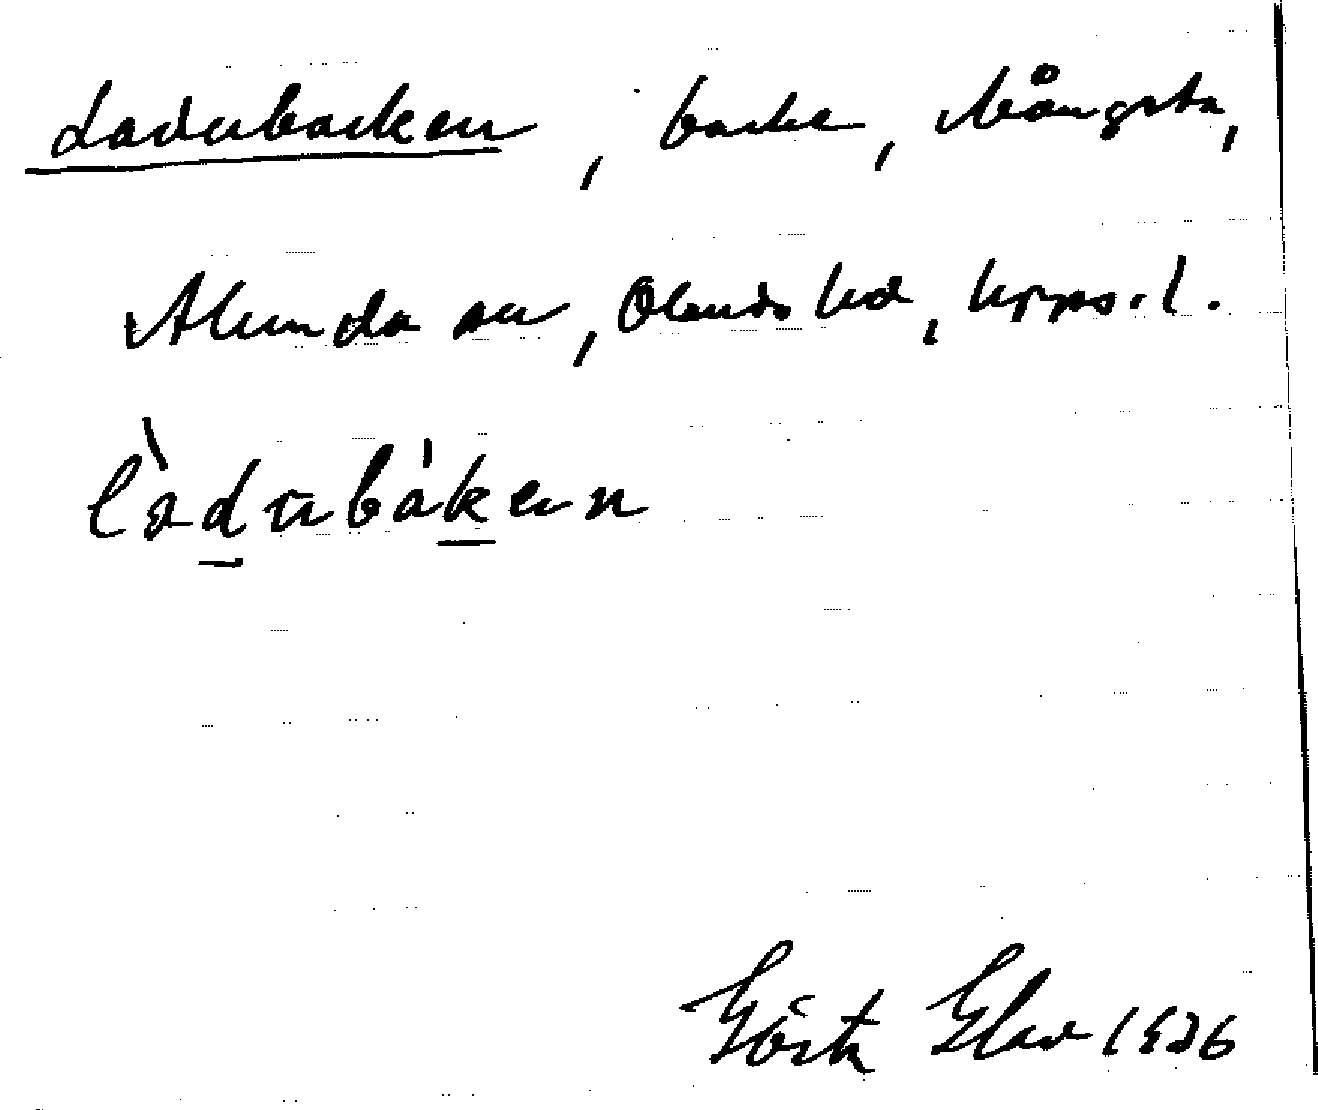 Ladubacken, backe, Mångsta,
Alunda sn, Olands hd, Upps. l.
làdubákenn
Gösta Elav 1936